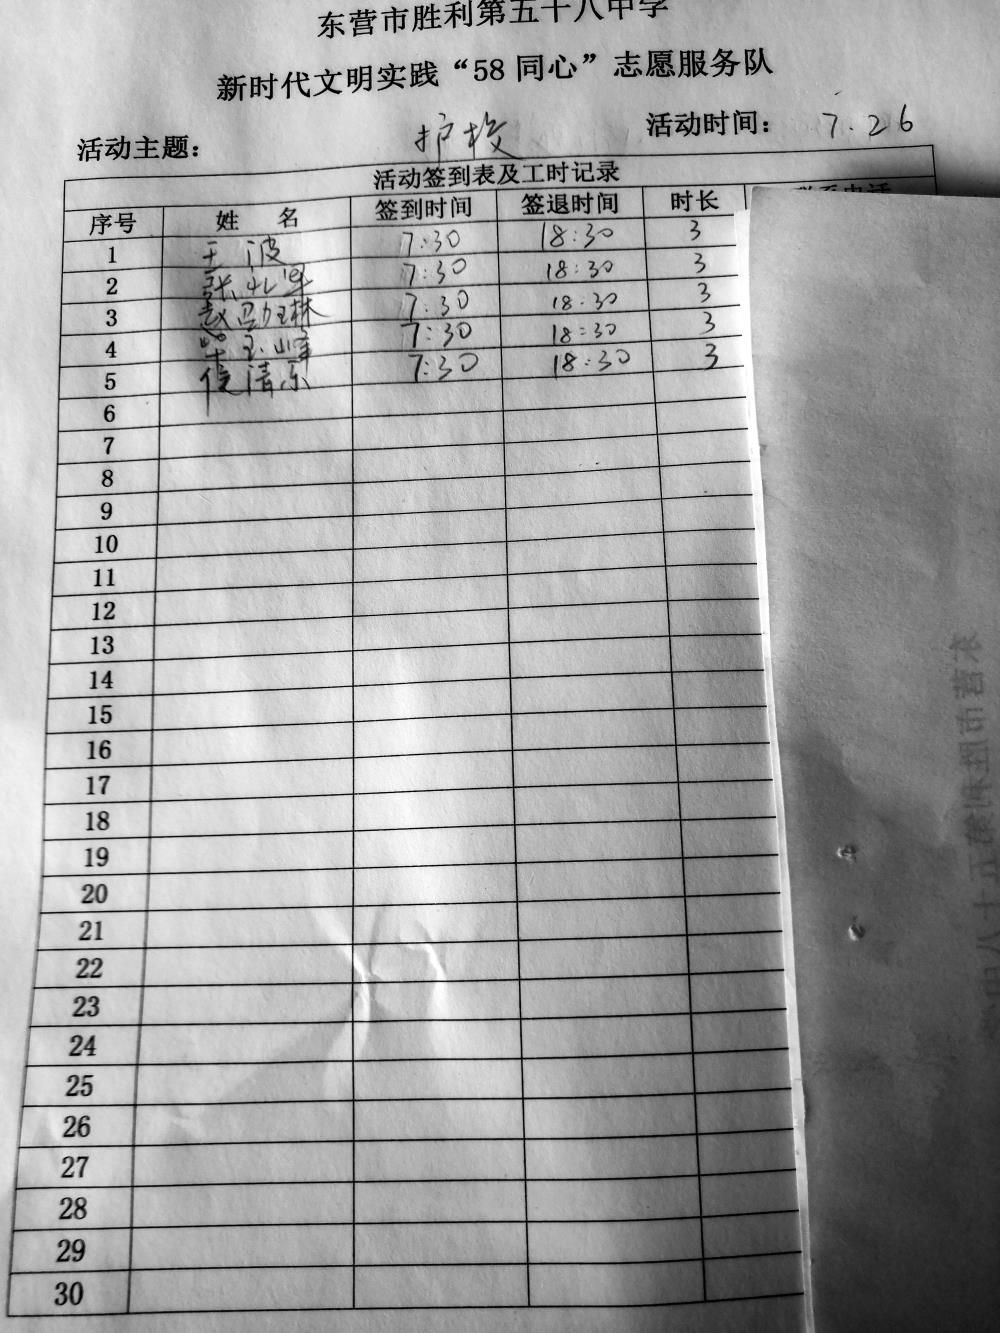 东营市胜利第五十八中学
新时代文明实践“58 同心”志愿服务队
活动主题： 护校 活动时间： 7.26
活动签到表及工时记录
序号 姓 名 签到时间 签退时间 时长 联系电话
1 王波 7:30 18:30 3
2 张 7:30 18:30 3
3 赵 林 7:30 18:30 3
4 7:30 18:30 3
5 清乐 7:30 18:30 3
6
7
8
9
10
11
12
13
14
15
16
17
18
19
20
21
22
23
24
25
26
27
28
29
30
东营市胜利第五十八中学